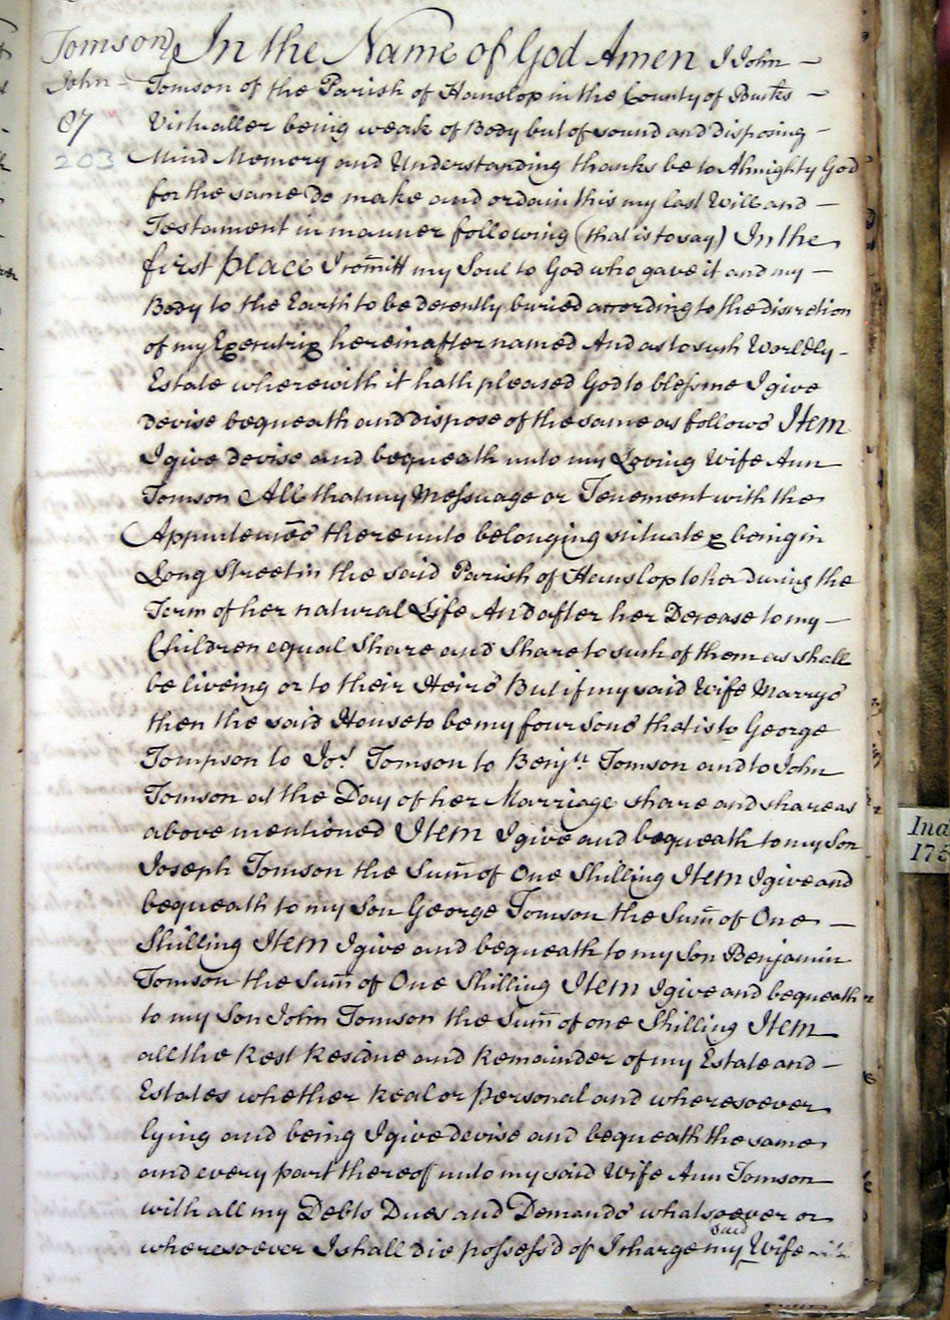 Tomson In the Name of God Amen I John
John Tomson of the Parish of Hanslop in the County of Bucks
87 Victualler being weak of Body but of sound and disposing
203 Mind Memory and Understanding thanks be to Almighty God
for the same do make and ordain this my last Will and
Testament in manner following (that is to say) In the
first place I com̄itt my Soul to God who gave it and my
Body to the Earth to be decently buried according to the discretion
of my Executrix hereinafter named And as to such Worldly
Estate wherewith it hath pleased God to bless me I give
devise bequeath and dispose of the same as follows Item
I give devise and bequeath unto my Loving Wife Ann
Tomson All that my Messuage or Tenement with the
Appurten̄ces thereunto belonging situate & being in
Long Street in the said Parish of Hanslop to her during the
Term of her natural Life And after her Decease to my
Children equal Share and Share to such of them as shall
be liveing or to their Heirs But if my said Wife Marrys
then the said House to be my four Sons that is to George
Tompson to Jos. Tomson to Benjn. Tomson and to John
Tomson at the Day of her Marriage share and share as
above mentioned Item I give and bequeath to my Son
Joseph Tomson the Sum̄ of One Shilling Item I give and
bequeath to my Son George Tomson the Sum̄ of One
Shilling Item I give and bequeath to my Son Benjamin
Tomson the Sum̄ of One Shilling Item I give and bequeath
to my Son John Tomson the Sum̄ of one Shilling Item
all the Rest Residue and Remainder of my Estate and
Estates whether Real or Personal and wheresoever
lying and being I give devise and bequeath the same
and every part thereof unto my said Wife Ann Tomson
with all my Debts Dues and Demands whatsoever or
wheresoever I shall die possess'd of I charge my said Wife
Ind
175